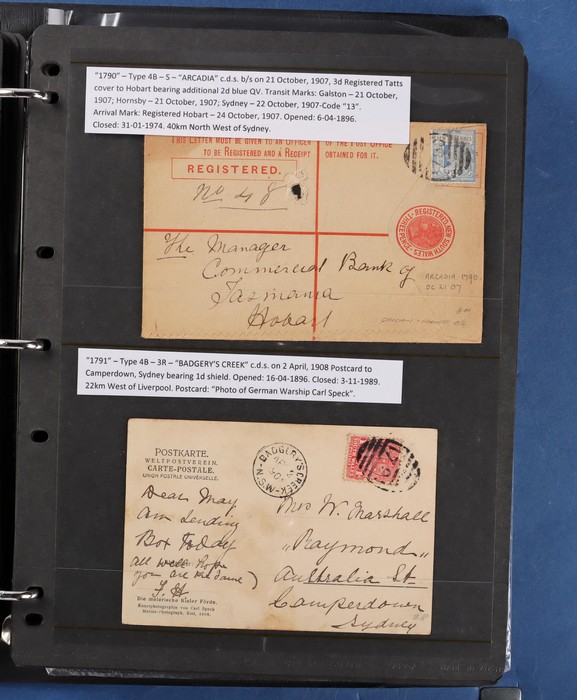 "1790" – Type 4B – S – "ARCADIA" c.d.s. b/s on 21 October, 1907, 3d Registered Tatts
cover to Hobart bearing additional 2d blue QV. Transit Marks: Galston – 21 October,
1907; Hornsby – 21 October, 1907; Sydney – 22 October, 1907-Code "13".
Arrival Mark: Registered Hobart – 24 October, 1907. Opened: 6-04-1896.
Closed: 31-01-1974. 40km North West of Sydney.
THIS LETTER MUST BE GIVEN TO AN OFFICER OF THE POST OFFICE
TO BE REGISTERED AND A RECEIPT OBTAINED FOR IT.
REGISTERED.
No 48
REGISTERED NEW SOUTH WALES THREEPENCE
The Manager
Commercial Bank of
Tasmania
Hobart
ARCADIA 1790
OC 21 07
"1791" – Type 4B – 3R – "BADGERY'S CREEK" c.d.s. on 2 April, 1908 Postcard to
Camperdown, Sydney bearing 1d shield. Opened: 16-04-1896. Closed: 3-11-1989.
22km West of Liverpool. Postcard: "Photo of German Warship Carl Speck".
POSTKARTE.
WELTPOSTVEREIN.
CARTE-POSTALE.
UNION POSTALE UNIVERSELLE.
BADGERY'S CREEK N.S.W
AP 2
Dear May
am sending
Box To Day
all well Hope
you are the same
Mrs W. Marshall
"Raymond"
Australia St
Camperdown
Sydney
Die malerische Kieler Förde.